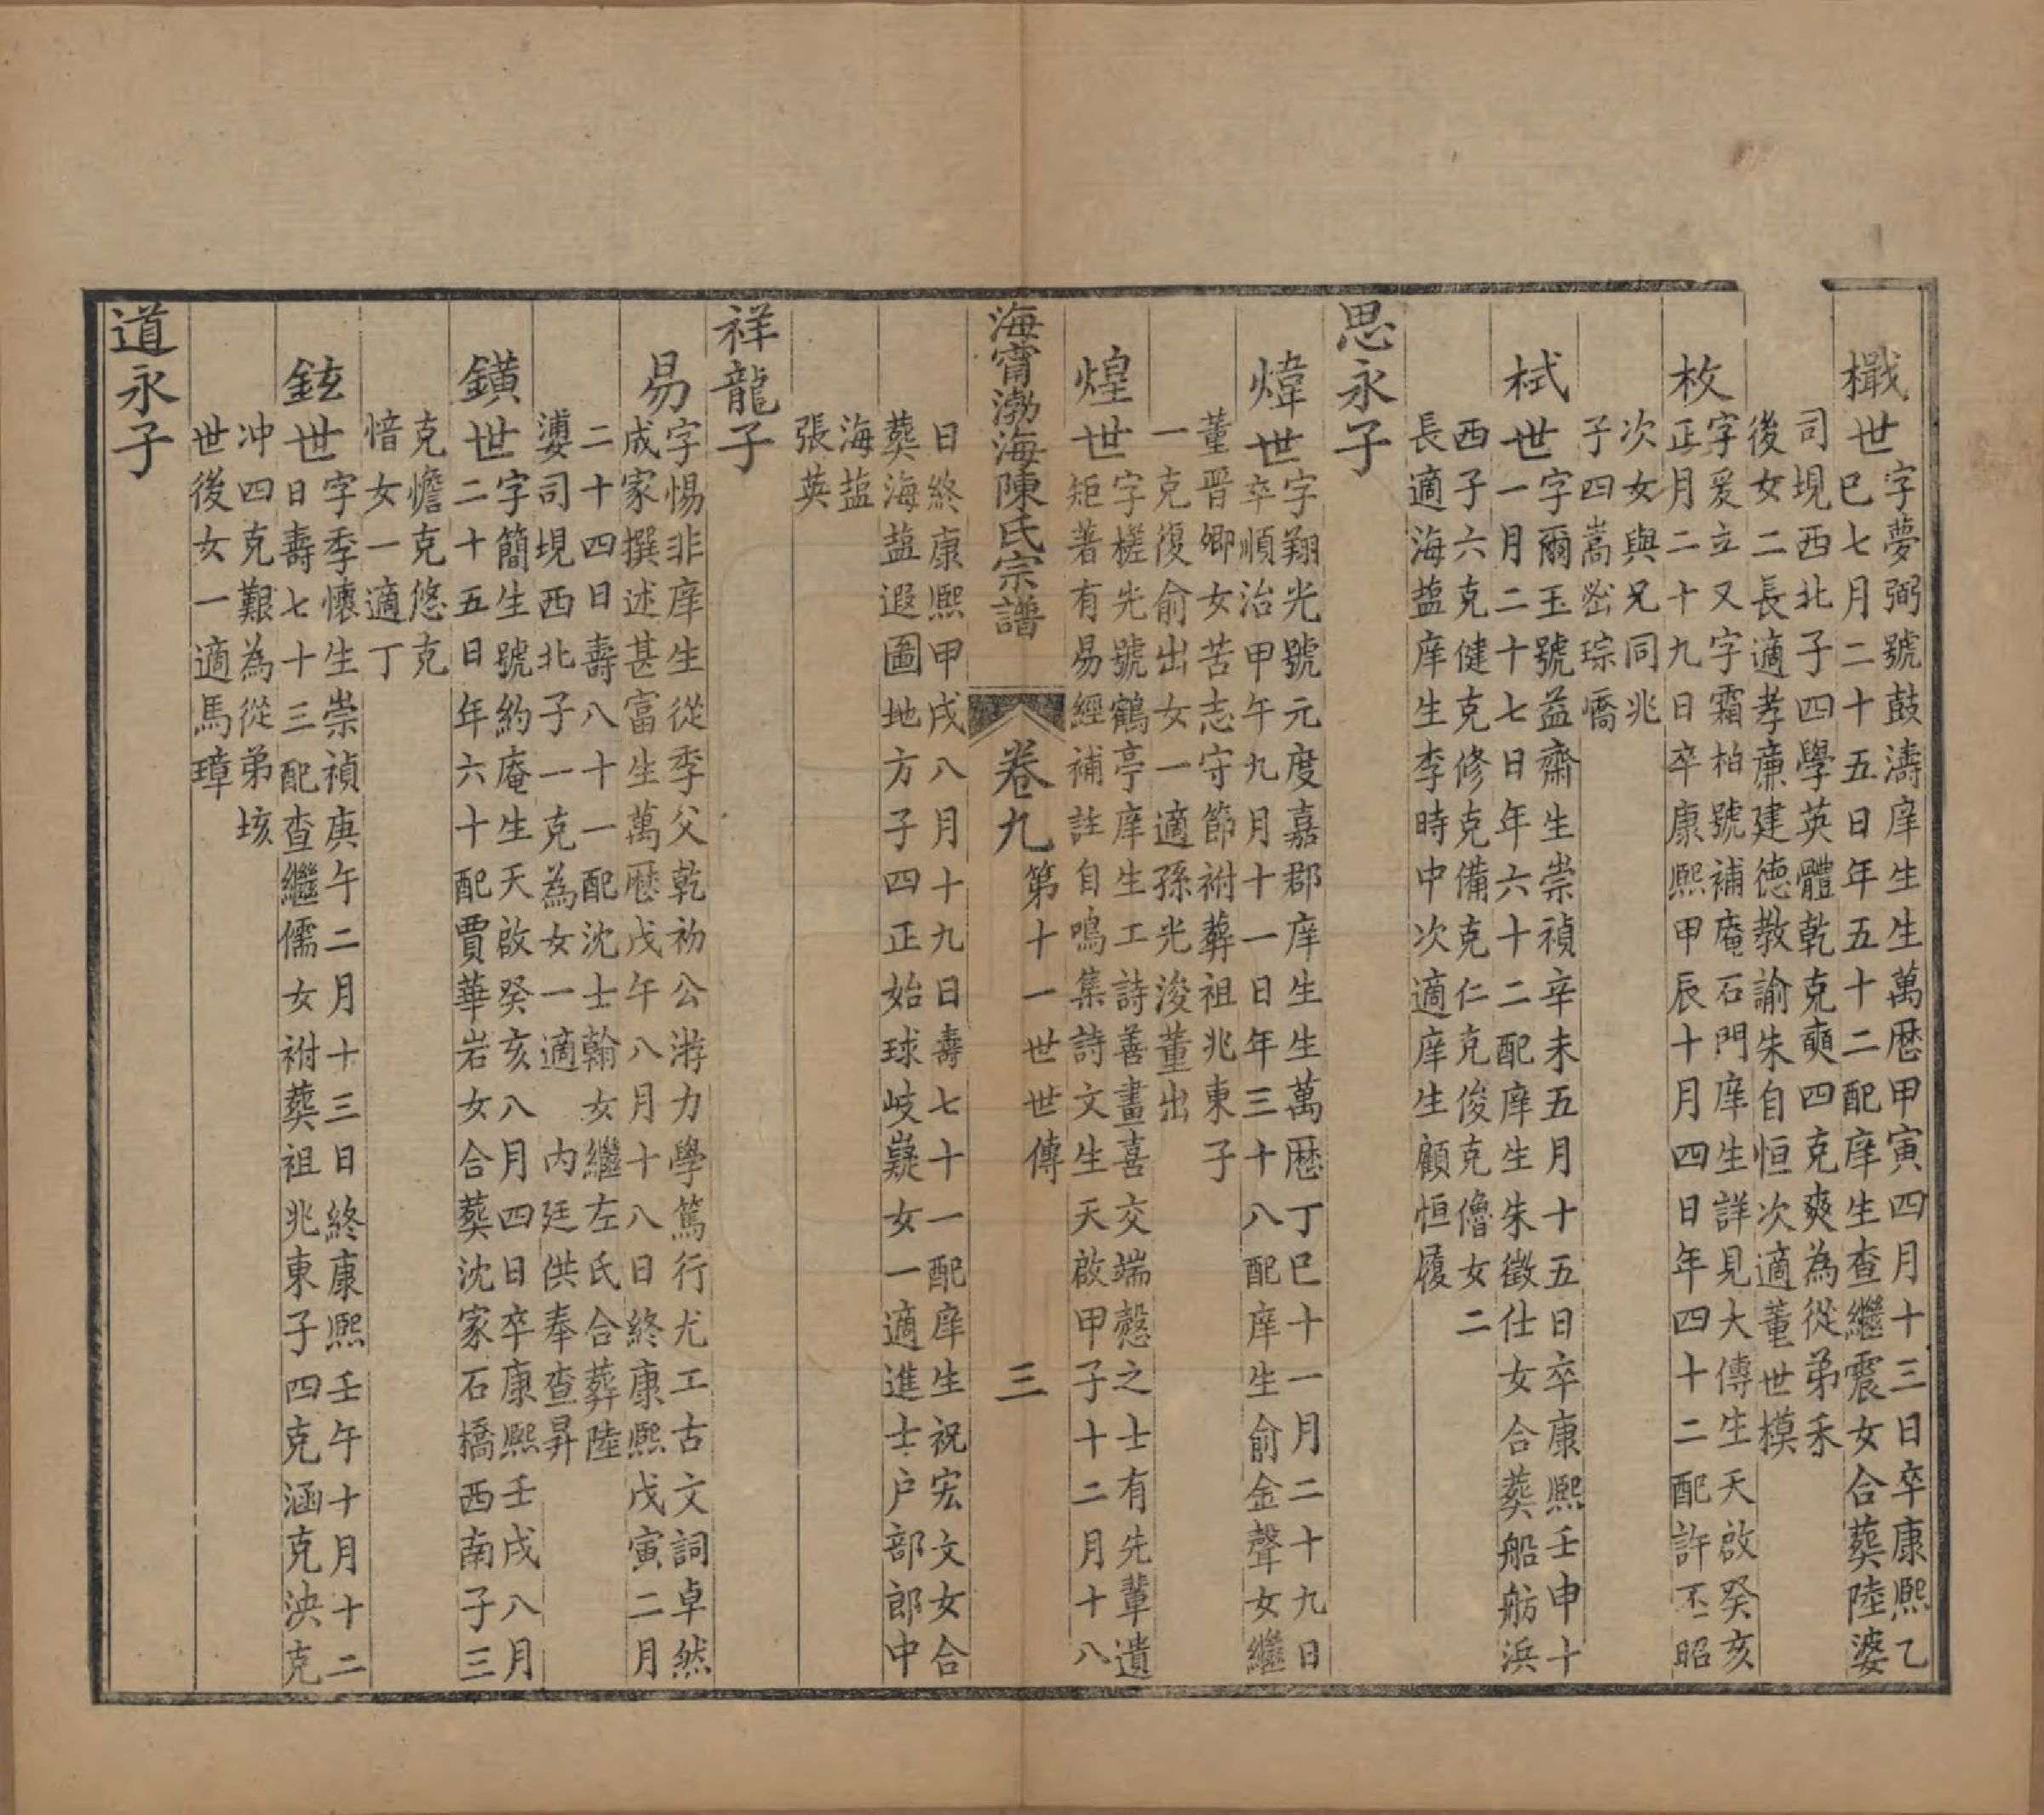 檝世字夢弼號鼓濤庠生生萬曆甲寅四月十三日卒康熙乙
巳七月二十五日年五十二配庠生查繼震女合葬陸婆
司垷西北子四學英體乾克奭四克爽為從弟禾
後女二長適孝廉建德教諭朱自恒次適董世模
枚字爰立又字霜柏號補庵石門庠生詳見大傳生天啟癸亥
正月二十九日卒康熙甲辰十月四日年四十二配許丕昭
次女與兄同兆
子四嵩嵤琮㠐
栻世字爾玉號益齋生崇禎辛未五月十五日卒康熙壬申十
一月二十七日年六十二配庠生朱徵仕女合葬船舫浜
西子六克健克修克備克仁克俊克儈女二
長適海鹽庠生李時中次適庠生顧恒履
思永子
煒世字翔光號元度嘉郡庠生生萬曆丁巳十一月二十九日
卒順治甲午九月十一日年三十八配庠生俞金聲女繼
董晉卿女苦志守節祔葬祖兆東子
一克復俞出女一適孫光浚董出
煌世字槎先號鶴亭庠生工詩善畫喜交端慤之士有先輩遺
矩著有易經補註自鳴集詩文生天啟甲子十二月十八
海甯渤海陳氏宗譜 卷九 第十一世世傳 三
日終康熙甲戌八月十九日壽七十一配庠生祝宏文女合
葬海鹽遐圖地方子四正始球岐嶷女一適進士户部郎中
海鹽
張英
祥龍子
易字惕非庠生從季父乾初公游力學篤行尤工古文詞卓然
成家撰述甚富生萬曆戊午八月十八日終康熙戊寅二月
二十四日壽八十一配沈士翰女繼左氏合葬陸
婆司垷西北子一克為女一適 内廷供奉查昇
鐄世字簡生號約庵生天啟癸亥八月四日卒康熙壬戌八月
二十五日年六十配賈華岩女合葬沈家石橋西南子三
克憺克悠克
愔女一適丁
鉉世字季懷生崇禎庚午二月十三日終康熙壬午十月十二
日壽七十三配查繼儒女祔葬祖兆東子四克涵克泱克
冲四克艱為從弟垓
世後女一適馬璋
道永子